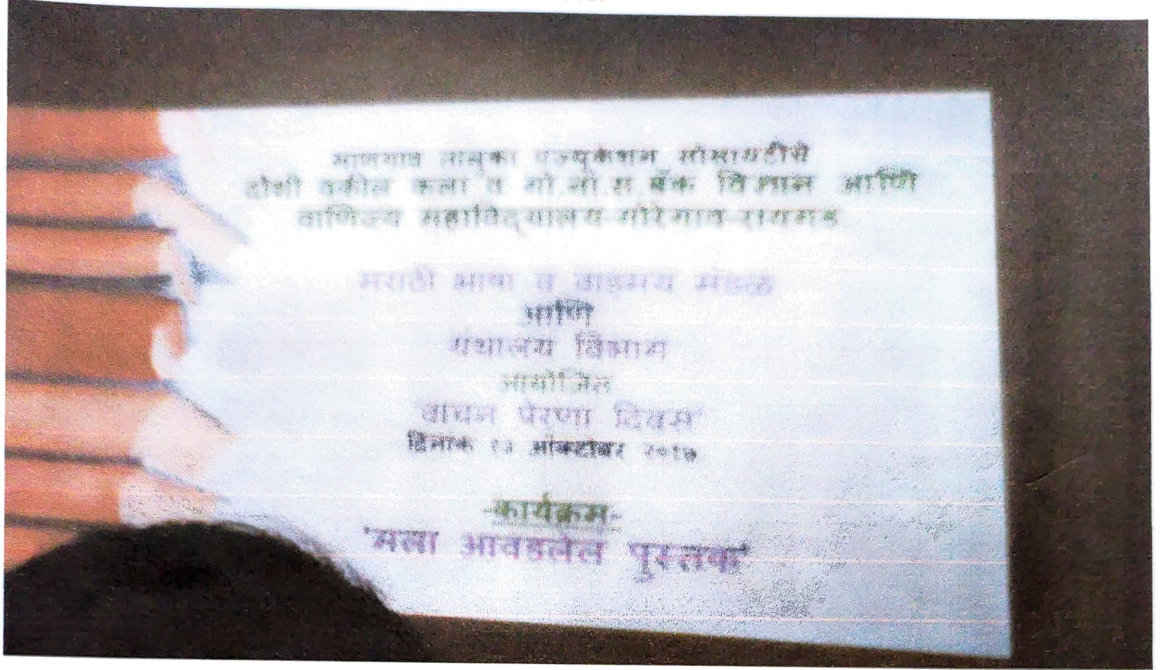 माणगाव तालुका एज्युकेशन सोसायटीचे
दोशी वकील कला व गो.को.स.बँक विज्ञान आणि
वाणिज्य महाविद्यालय-गोरेगाव-रायगड
मराठी भाषा व वाङमय मंडळ
आणि
ग्रंथालय विभाग
आयोजित
'वाचन प्रेरणा दिवस'
दिनांक ऑक्टोबर
-कार्यक्रम-
'मला आवडलेले पुस्तक'